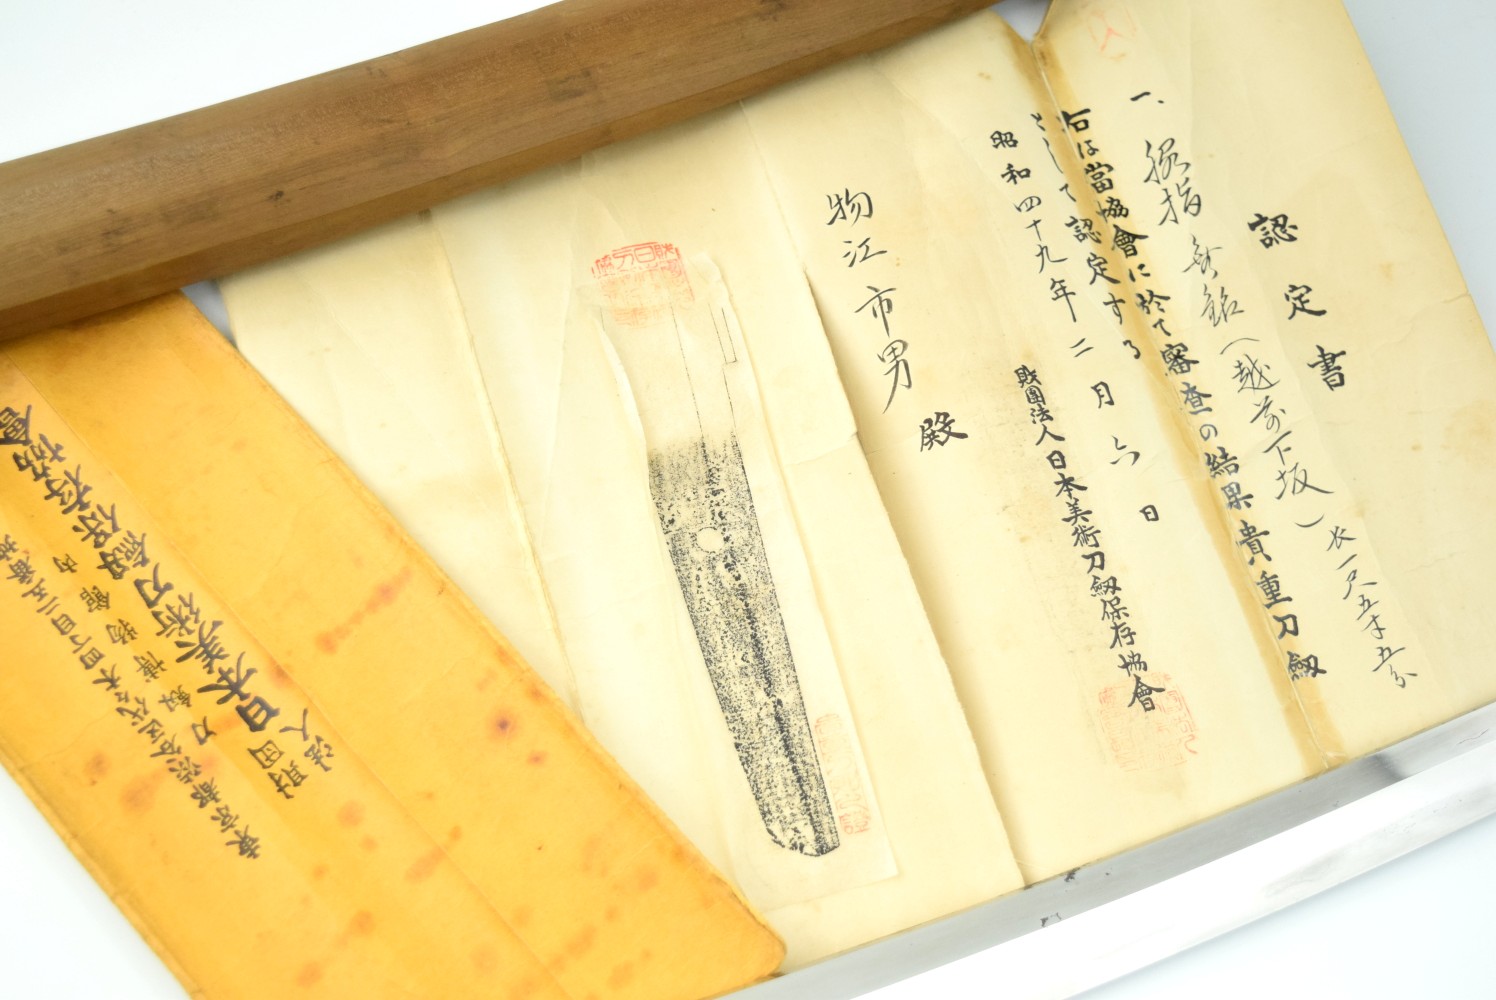 認定書
一、脇指 無銘(越前下坂)長一尺五寸五分
右は當協會に於て審査の結果貴重刀劔
として認定する
昭和四十九年二月六日
財團法人日本美術刀劔保存協會
物江市男殿
財団法人
日本美術刀劔保存協會
刀劔博物館内
東京都渋谷区代々木四丁目二五番地